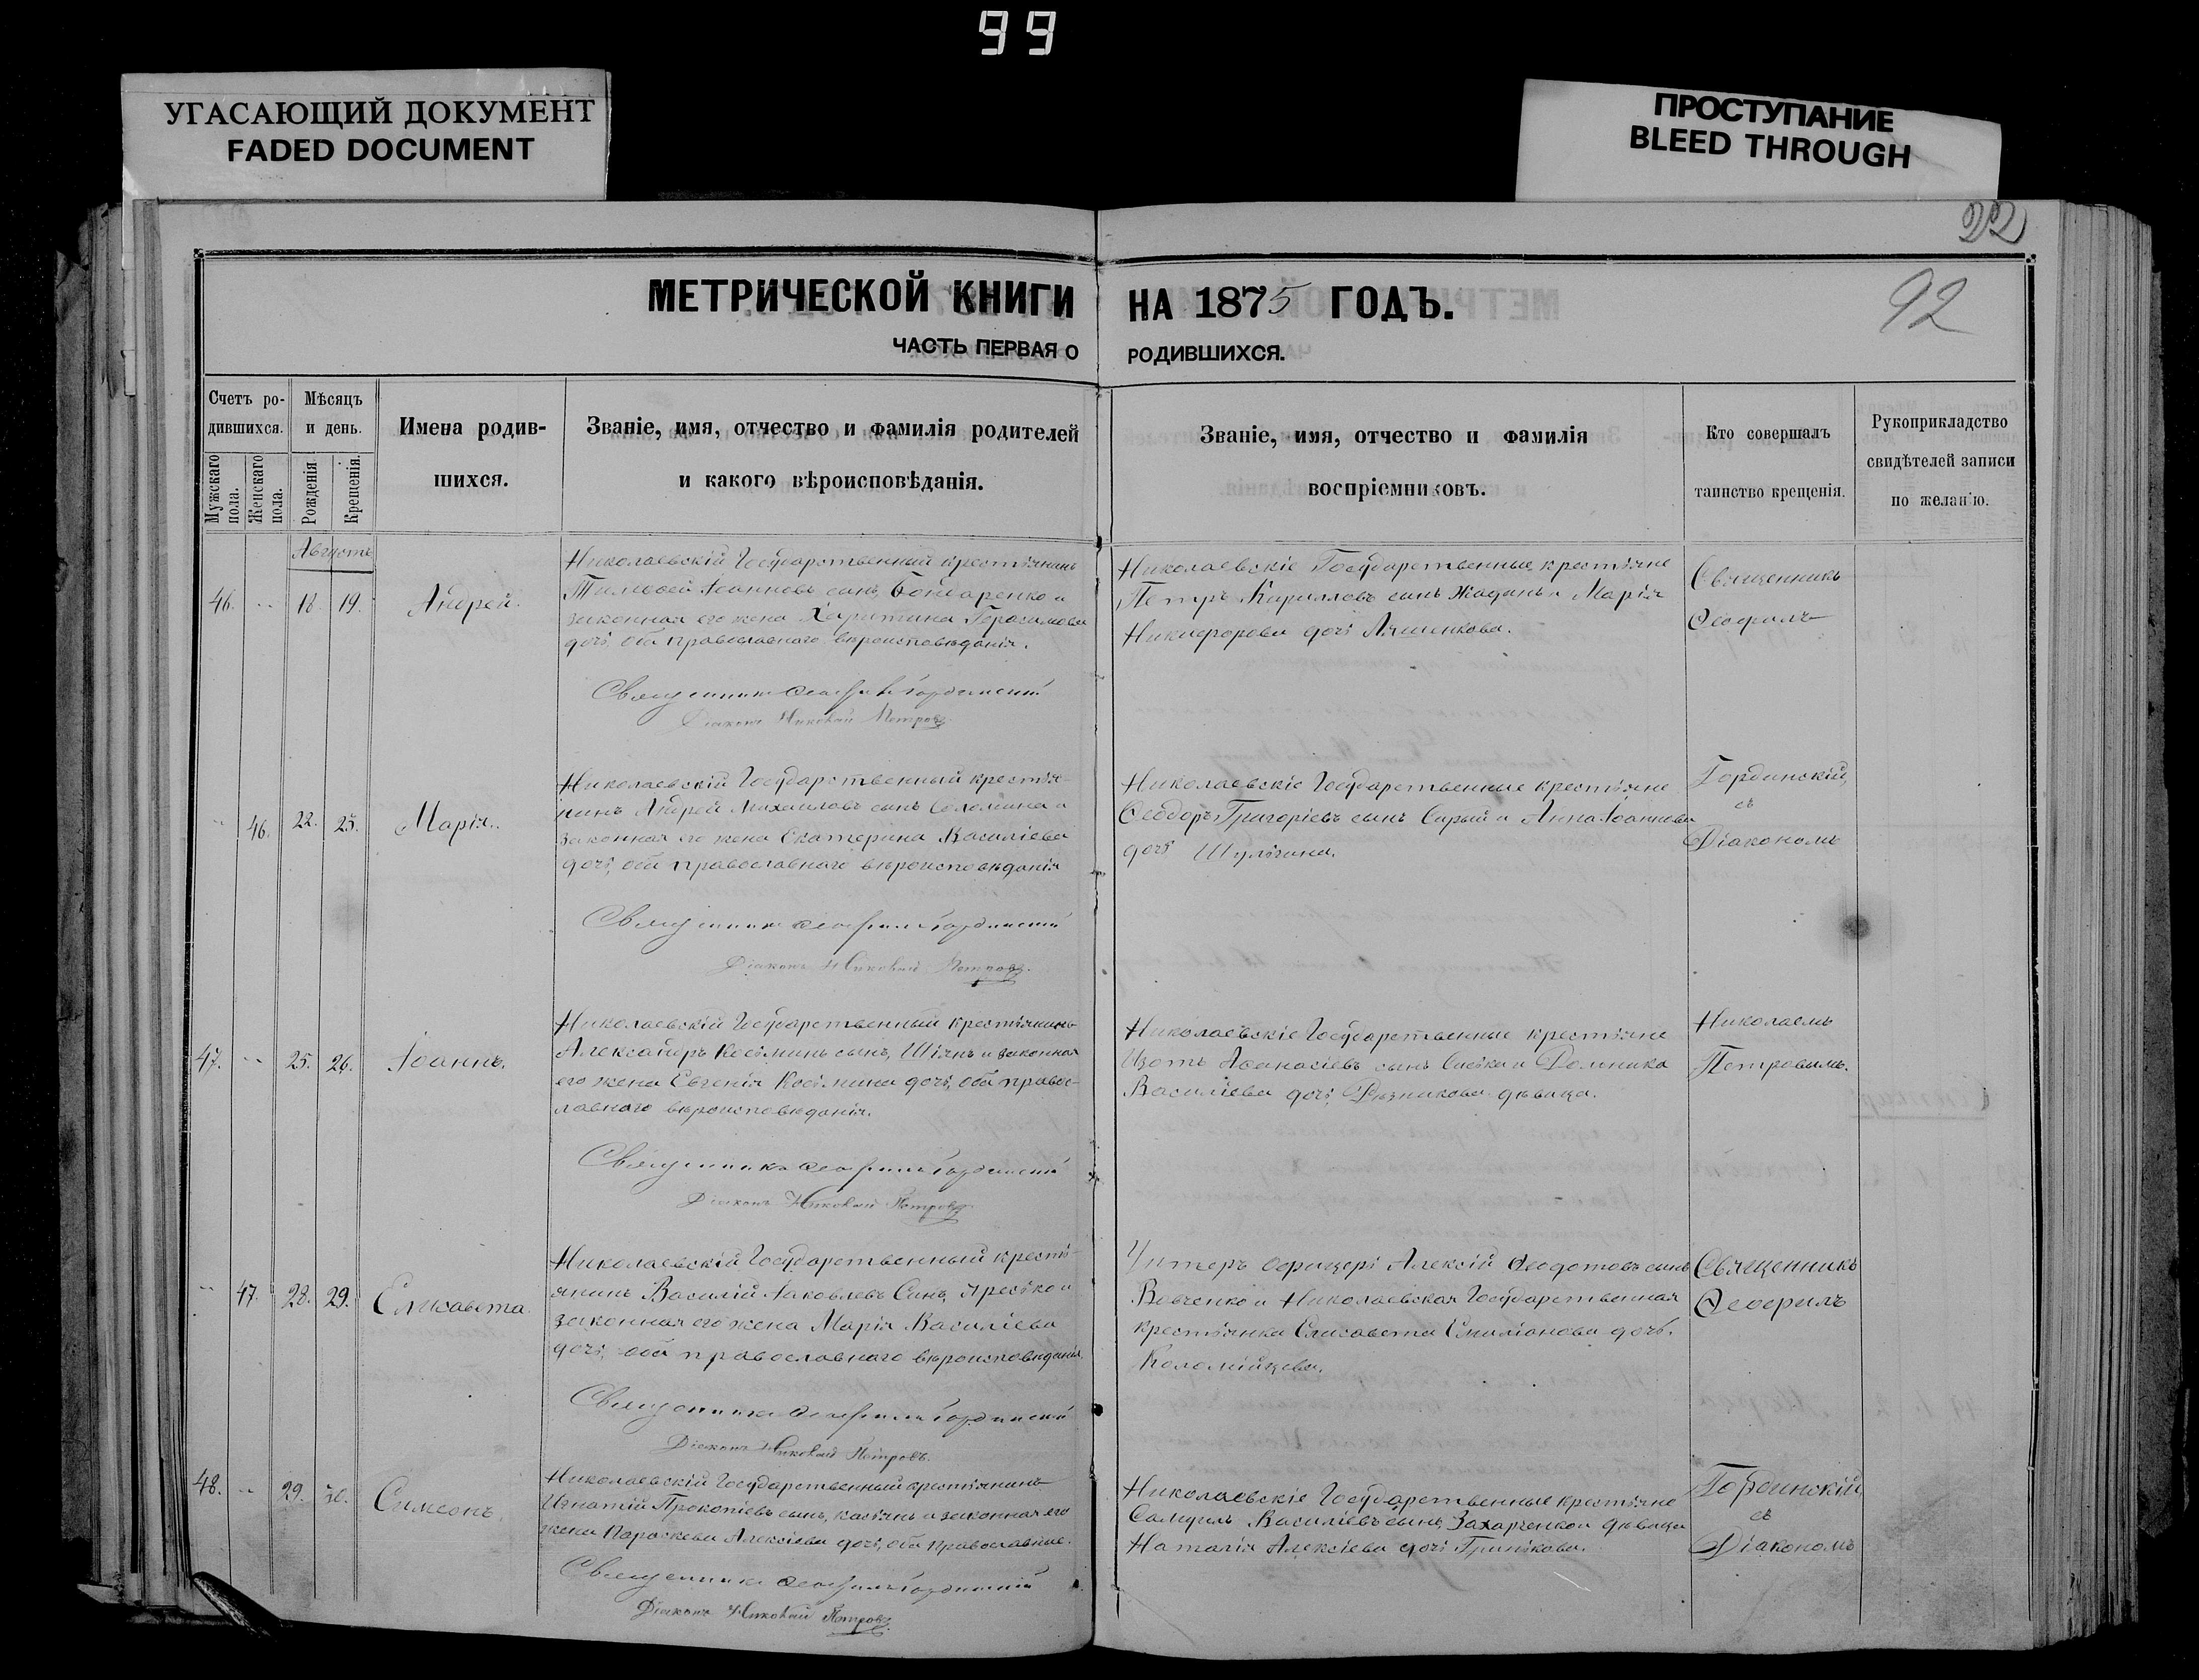 99
УГАСАЮЩИЙ ДОКУМЕНТ
FADED DOCUMENT
ПРОСТУПАНИЕ
BLEED THROUGH
22
92
МЕТРИЧЕСКОЙ КНИГИ НА 1875 ГОДЪ.
ЧАСТЬ ПЕРВАЯ О РОДИВШИХСЯ.
Счетъ ро-
дившихся.
Мужскаго пола.
Женскаго пола.
Мѣсяцъ
и день.
Рожденія
Крещенія.
Имена родив-
шихся.
Званіе, имя, отчество и фамилія родителей
и какого вѣроисповѣданія.
Званіе, имя, отчество и фамилія
воспріемниковъ.
Кто совершалъ
таинство крещенія.
Рукоприкладство
свидѣтелей записи
по желанію.
Августъ
46. 18. 19. Андрей.
Николаевскій Государственный крестьянинъ
Тимофей Іоанновъ сынъ, Бондаренко и
законная его жена Харитина Герасимова
дочь, оба православнаго вѣроисповѣданія.
Священникъ Ѳеофилъ Гординскій
Діаконъ Николай Петровъ.
Николаевскіе Государственные крестьяне
Петръ Кирилловъ сынъ Жаданъ и Марія
Никифорова дочь Ляшенкова.
Священникъ
Ѳеофилъ
46. 22. 25. Марія.
Николаевскій Государственный крестья-
нинъ Андрей Михаиловъ сынъ Соломина и
законная его жена Екатерина Василіева
дочь, оба православнаго вѣроисповѣданія
Священникъ Ѳеофилъ Гординскій
Діаконъ Николай Петровъ.
Николаевскіе Государственные крестьяне
Ѳеодоръ Григоріевъ сынъ Сирый и Анна Іоаннова
дочь Шульгина.
Гординскій,
съ
Діакономъ
47. 25. 26. Іоаннъ.
Николаевскій Государственный крестьянинъ
Александръ Косьминъ сынъ, и законная
его жена Евгенія Косьмина дочь, оба правос-
лавнаго вѣроисповѣданія.
Священникъ Ѳеофилъ Гординскій
Діаконъ Николай Петровъ
Николаевскіе Государственные крестьяне
Изотъ Аѳанасіевъ сынъ и Домника
Василіева дочь, дѣвица.
Николаемъ
Петровымъ.
47. 28. 29. Елисавета.
Николаевскій Государственный кресть-
янинъ Василій Іаковлевъ Сынъ, и
законная его жена Марія Василіева
дочь, оба православнаго вѣроисповѣданія.
Священникъ Ѳеофилъ Гординскій
Діаконъ Николай Петровъ.
Унтеръ офицеръ Алексій Ѳеодотовъ сынъ
Вовченко и Николаевская Государственная
крестьянка Елисавета дочь.
Коломійцева.
Священникъ
Ѳеофилъ
48. 29. 30. Симеонъ.
Николаевскій Государственный крестьянинъ
Игнатій Прокопіевъ сынъ, Касьянъ и законная его
жена Параскева Алексіева дочь, оба православные.
Священникъ Ѳеофилъ Гординскій
Діаконъ Николай Петровъ.
Николаевскіе Государственные крестьяне
Самуилъ Василіевъ сынъ, Захарченко и дѣвица
Наталія Алексіева дочь Гринькова.
Гординскій
съ
Діакономъ